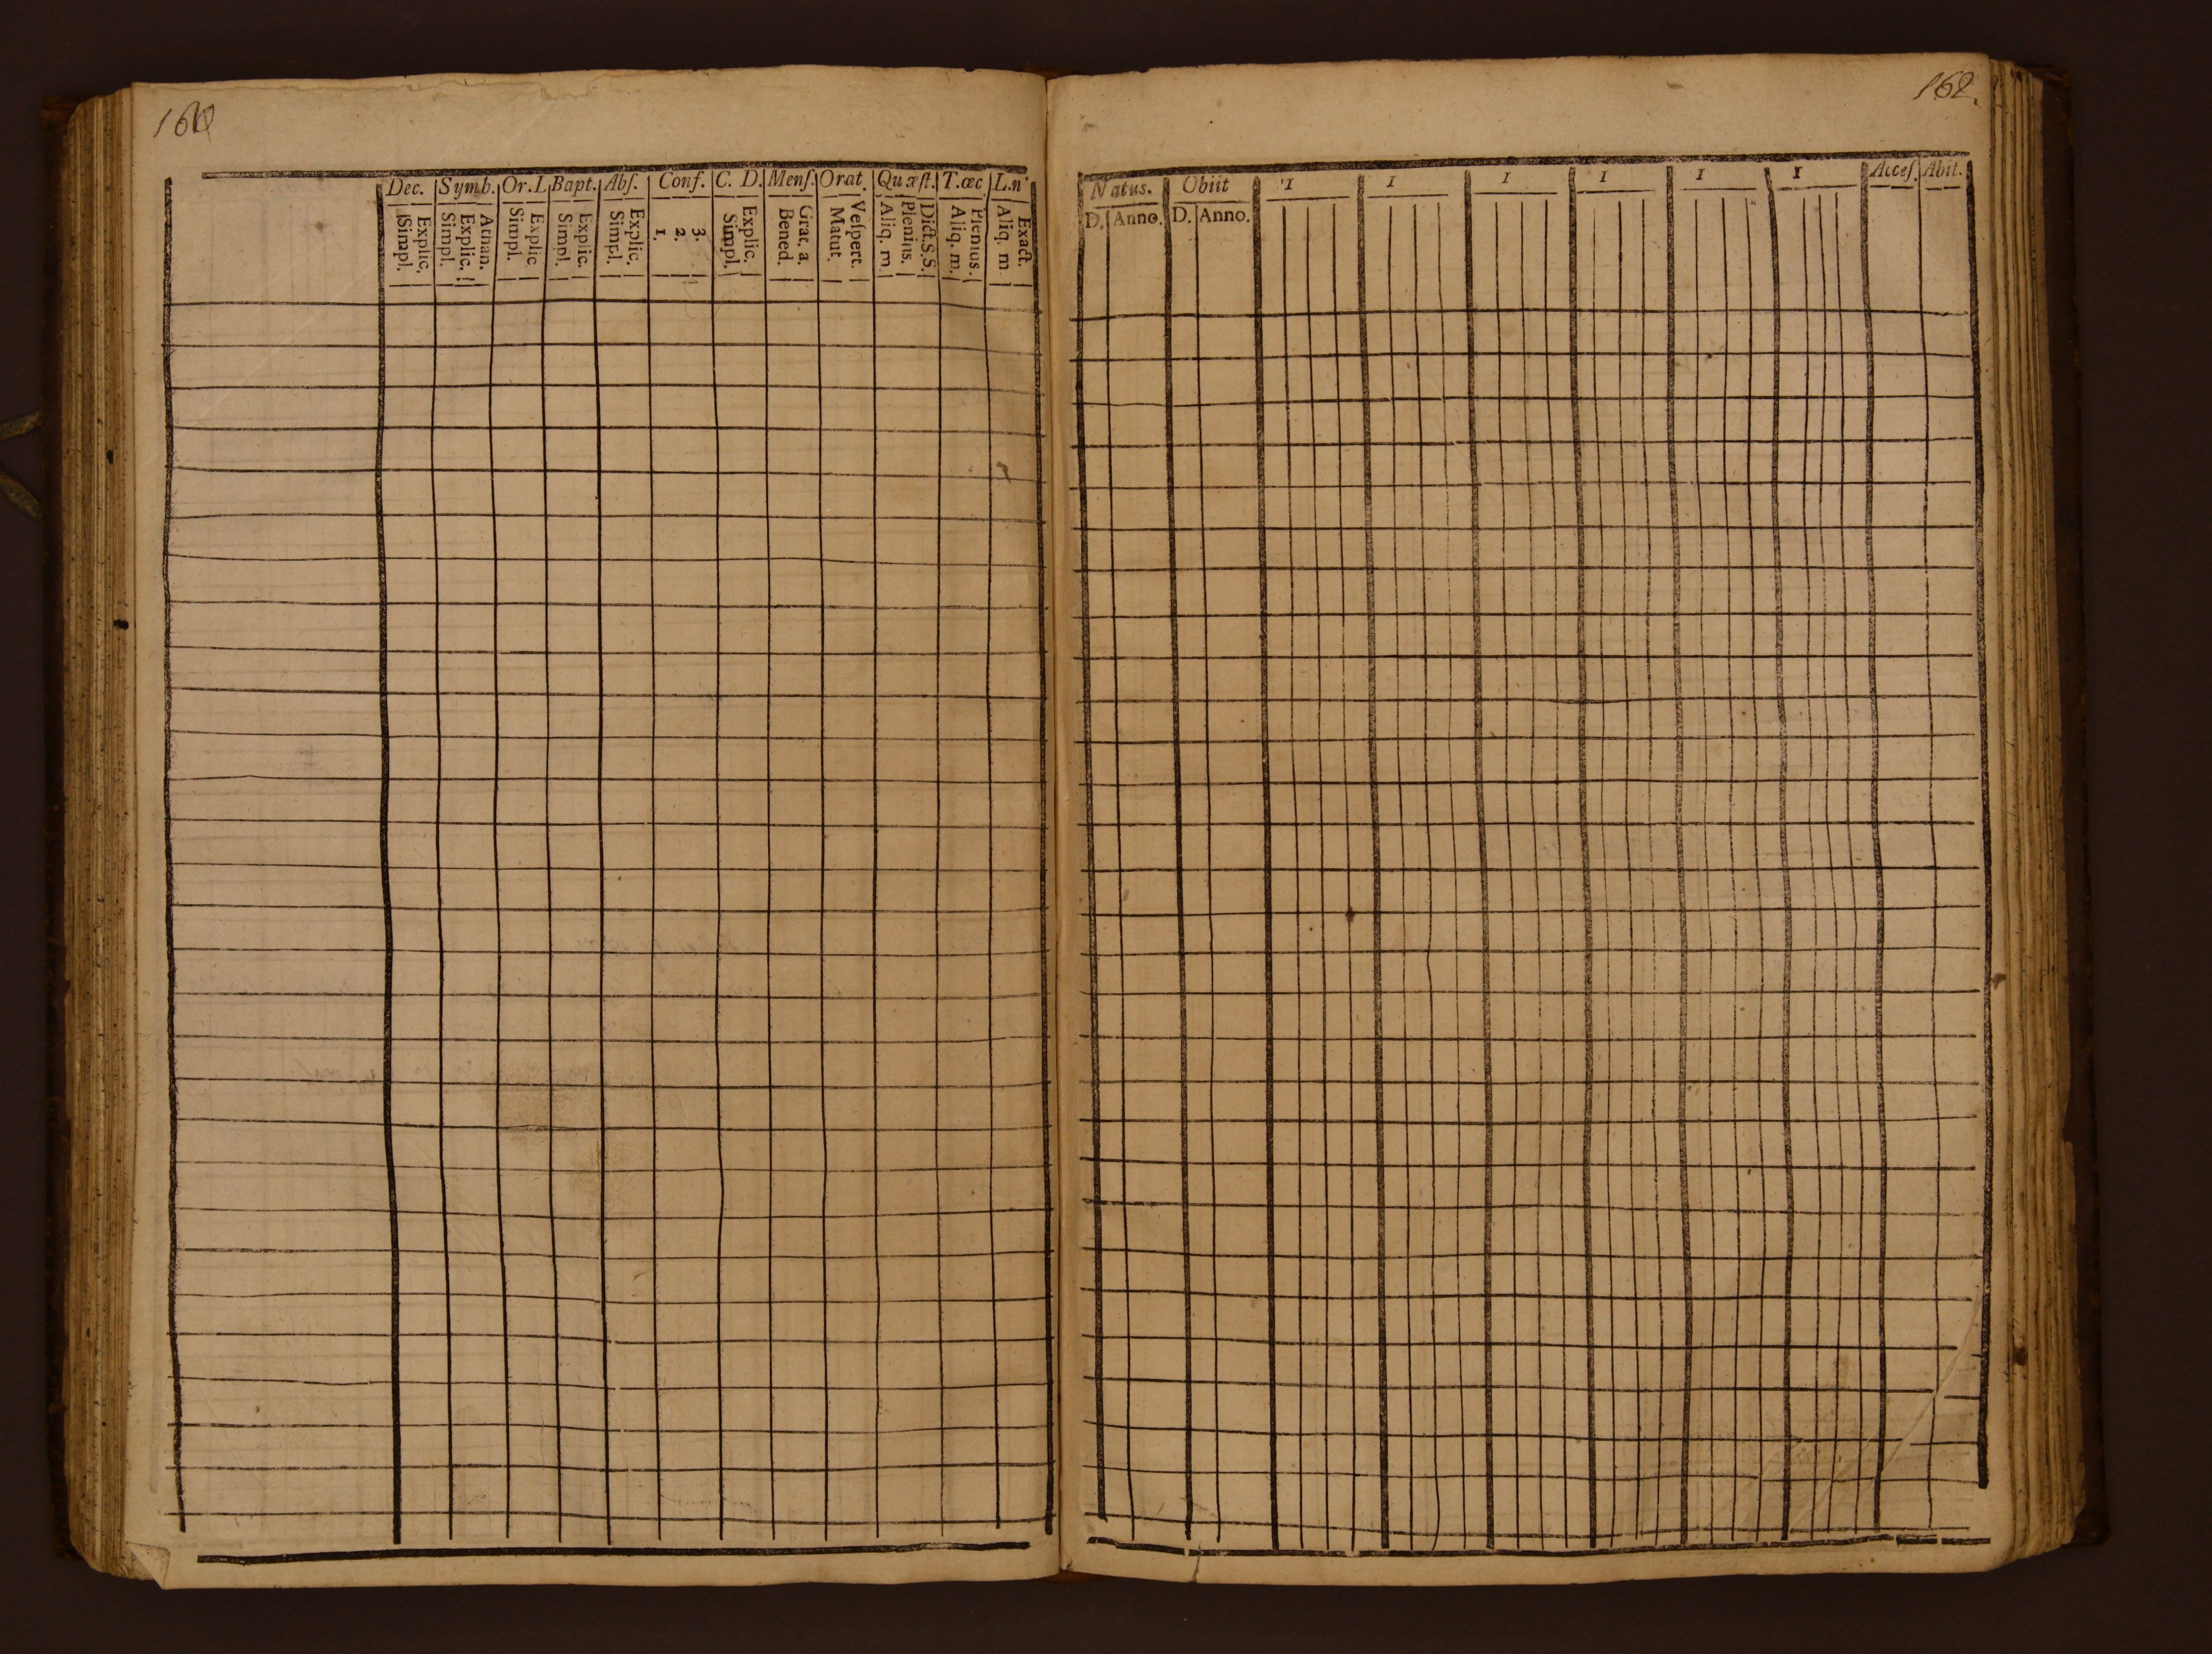 162.
Dec. Symb. Or. L Bapt. Abſ. Conf. C. D. Menſ. Orat. Quæſt. T. œc L. n
Explic. Simpl. Athan. Explic. Simpl. Explic. Simpl. Explic. Simpl. Explic. Simpl. 3. 2. 1. Explic. Simpl. Grat. a. Bened. Veſpert. Matut. Dict. S. S. Plenius. Aliq. m Plenius. Aliq. m. Exact. Aliq. m
Natus. Obiit 1 1 1 1 1 1 Acceſ. Abit.
D. Anno. D. Anno.